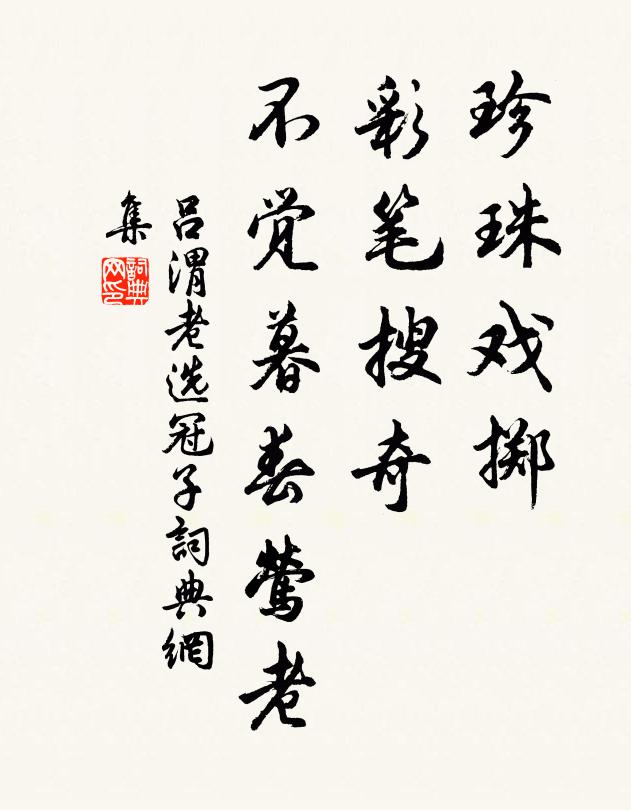 珍珠戏掷
彩笔搜奇
不觉暮春莺老
吕渭老选冠子詞典網
集
詞典
网印